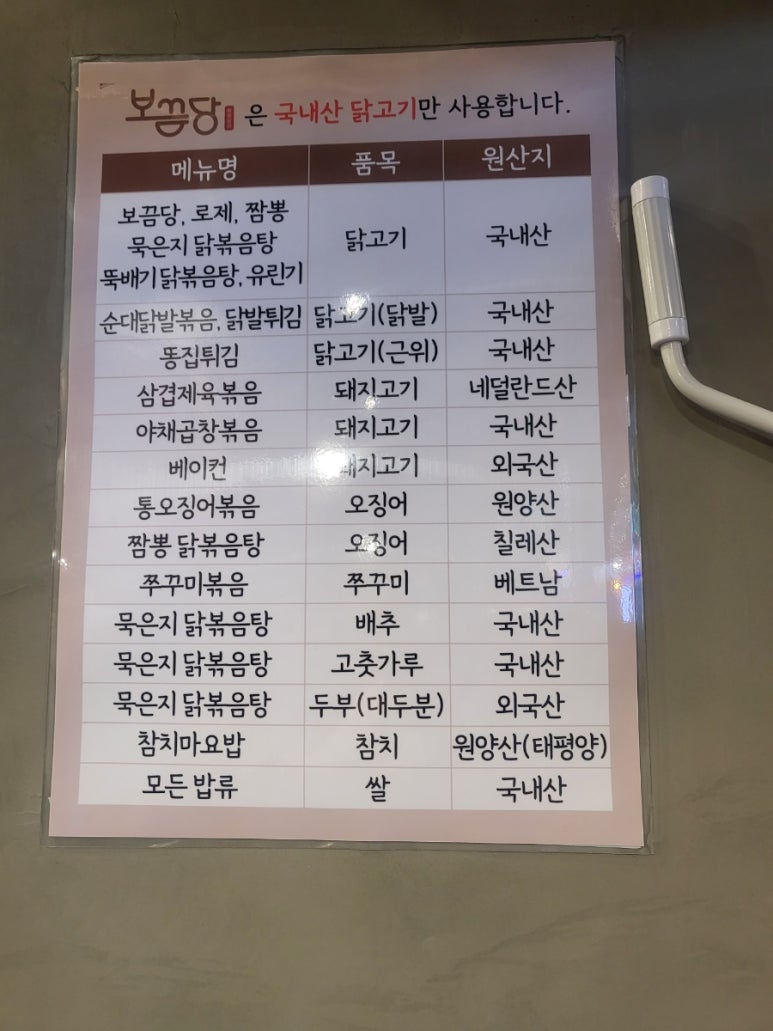 보끔당 은 국내산 닭고기만 사용합니다.
메뉴명 품목 원산지
보끔당, 로제, 짬뽕
묵은지 닭볶음탕
뚝배기 닭볶음탕, 유린기 닭고기 국내산
순대닭발볶음, 닭발튀김 닭고기(닭발) 국내산
똥집튀김 닭고기(근위) 국내산
삼겹제육볶음 돼지고기 네덜란드산
야채곱창볶음 돼지고기 국내산
베이컨 돼지고기 외국산
통오징어볶음 오징어 원양산
짬뽕 닭볶음탕 오징어 칠레산
쭈꾸미볶음 쭈꾸미 베트남
묵은지 닭볶음탕 배추 국내산
묵은지 닭볶음탕 고춧가루 국내산
묵은지 닭볶음탕 두부(대두분) 외국산
참치마요밥 참치 원양산(태평양)
모든 밥류 쌀 국내산